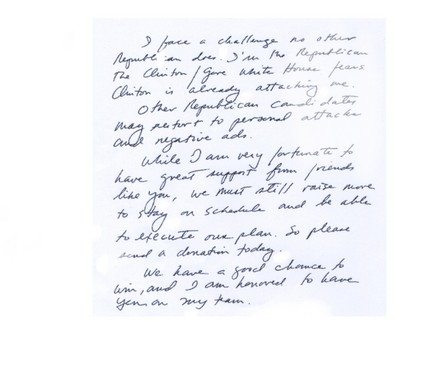 I face a challenge no other
Republican does. I'm the Republican
the Clinton/Gore White House fears
Clinton is already attacking me.
Other Republican candidates
may resort to personal attacks
and negative ads.
While I am very fortunate to
have great support from friends
like you, we must still raise more
to stay on schedule and be able
to execute our plan. So please
send a donation today.
We have a good chance to
win, and I am honored to have
you on my team.